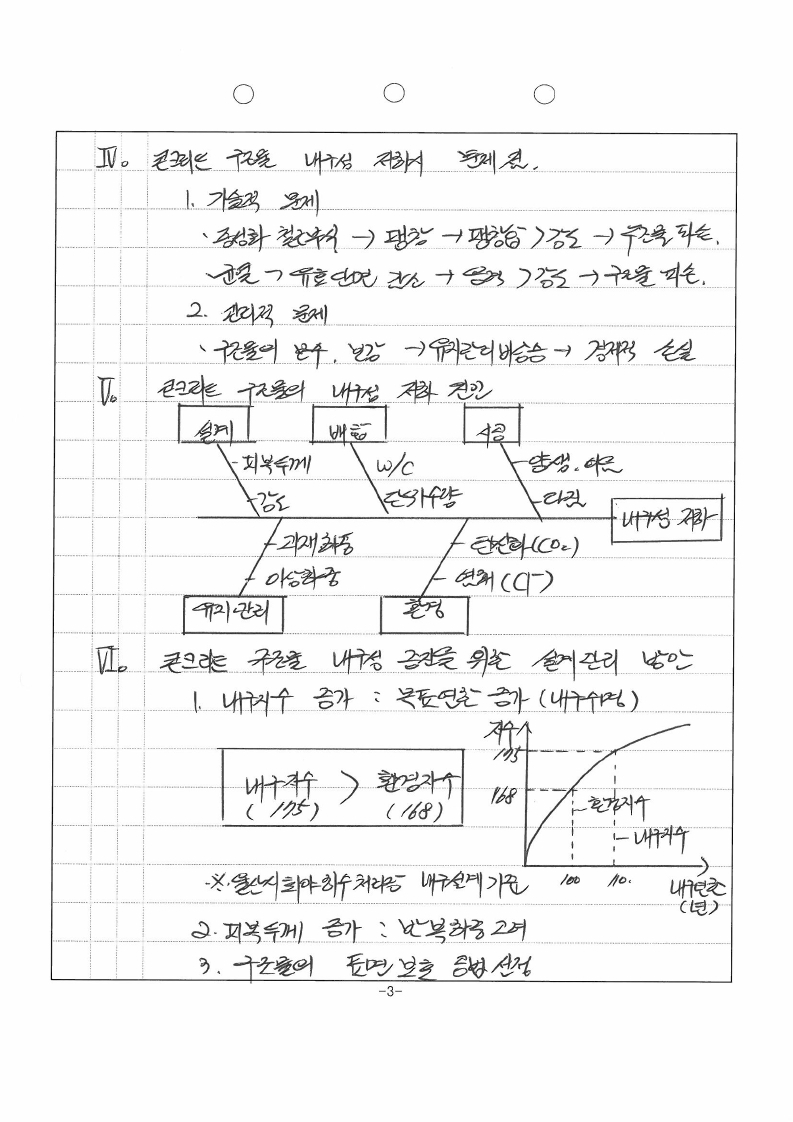 Ⅳ. 콘크리트 구조물 내구성 저하시 문제점.
1. 기술적 문제
· 중성화 철근부식 → 팽창 → 팽창압 > 강도 → 구조물 파손.
· 균열 → 유효단면 감소 → 응력 > 강도 → 구조물 파손.
2. 관리적 문제
· 구조물의 보수, 보강 → 유지관리비 상승 → 경제적 손실
Ⅴ. 콘크리트 구조물의 내구성 저하 원인
설계 배합 시공
피복두께 W/C 양생. 이음
강도 단위수량 다짐
내구성 저하
과재하중 탄산화(CO₂)
이상하중 염해(Cl⁻)
유지관리 환경
Ⅵ. 콘크리트 구조물 내구성 증진을 위한 설계관리 방안
1. 내구지수 증가 : 목표연한 증가 (내구수명)
지수
175
내구지수 > 환경지수
(175) (168)
168
환경지수
내구지수
100 110.
내구연한
(년)
※ 울산시 회야하수처리장 내구설계 기준
2. 피복두께 증가 : 반복하중 고려
3. 구조물의 표면 보호 공법 선정
-3-